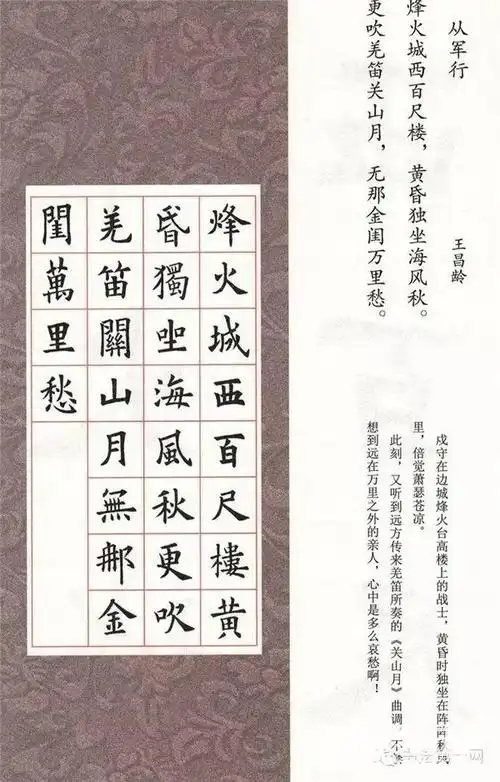 从军行
王昌龄
烽火城西百尺楼，黄昏独坐海风秋。
更吹羌笛关山月，无那金闺万里愁。
戍守在边城烽火台高楼上的战士，黄昏时独坐在阵阵秋风
里，倍觉萧瑟苍凉。
此刻，又听到远方传来羌笛所奏的《关山月》曲调，不禁
想到远在万里之外的亲人，心中是多么哀愁啊！
烽火城西百尺樓黄
昏獨坐海風秋更吹
羌笛關山月無那金
閨萬里愁